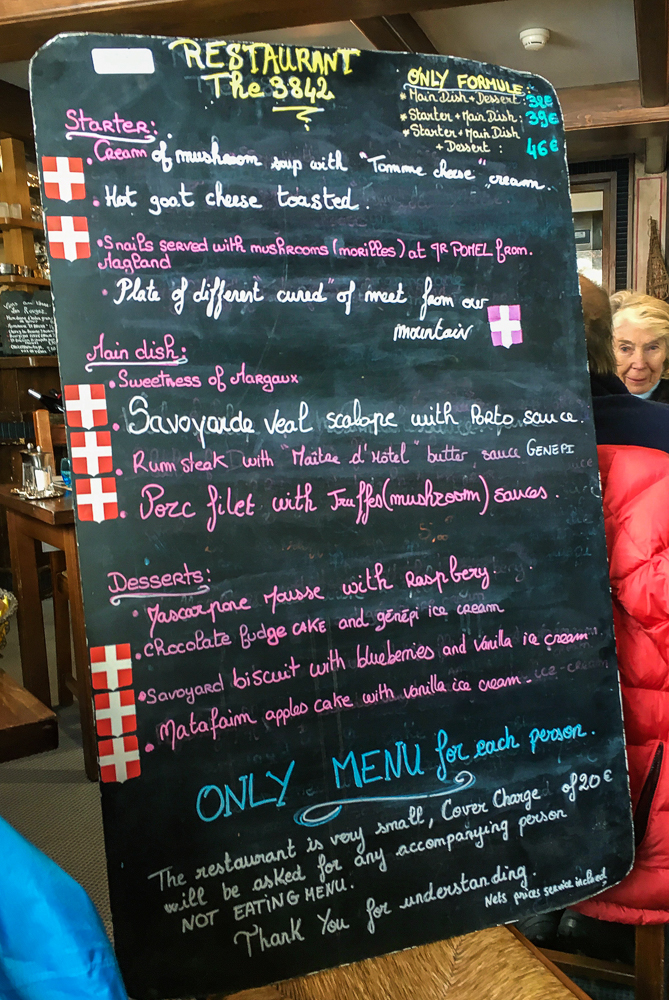 RESTAURANT
The 3842
ONLY FORMULE:
* Main Dish + Dessert: 38€
* Starter + Main Dish: 39€
* Starter + Main Dish
+ Dessert: 46€
Starter:
• Cream of mushroom soup with "Tomme cheese" cream.
• Hot goat cheese toasted.
• Snails served with mushrooms (morilles) at POMEL from
Magland
• Plate of different "cured" of meet from our
mountain
Main dish:
• Sweetness of Margaux
• Savoyarde Veal scalope with Porto sauce.
• Rum steak with "Maître d'Hôtel" butter sauce GENEPI
• Porc filet with Truffes (mushroom) sauces.
Desserts:
• Mascarpone Mousse with Raspbery
• Chocolate fudge CAKE and génépi ice cream
• Savoyard biscuit with blueberries and vanilla ice cream
• Matafaim apples cake with vanilla ice cream
ONLY MENU for each person.
The restaurant is very small, Cover Charge of 20€
will be asked for any accompanying person
NOT EATING MENU.
Thank You for understanding.
Nets prices service included